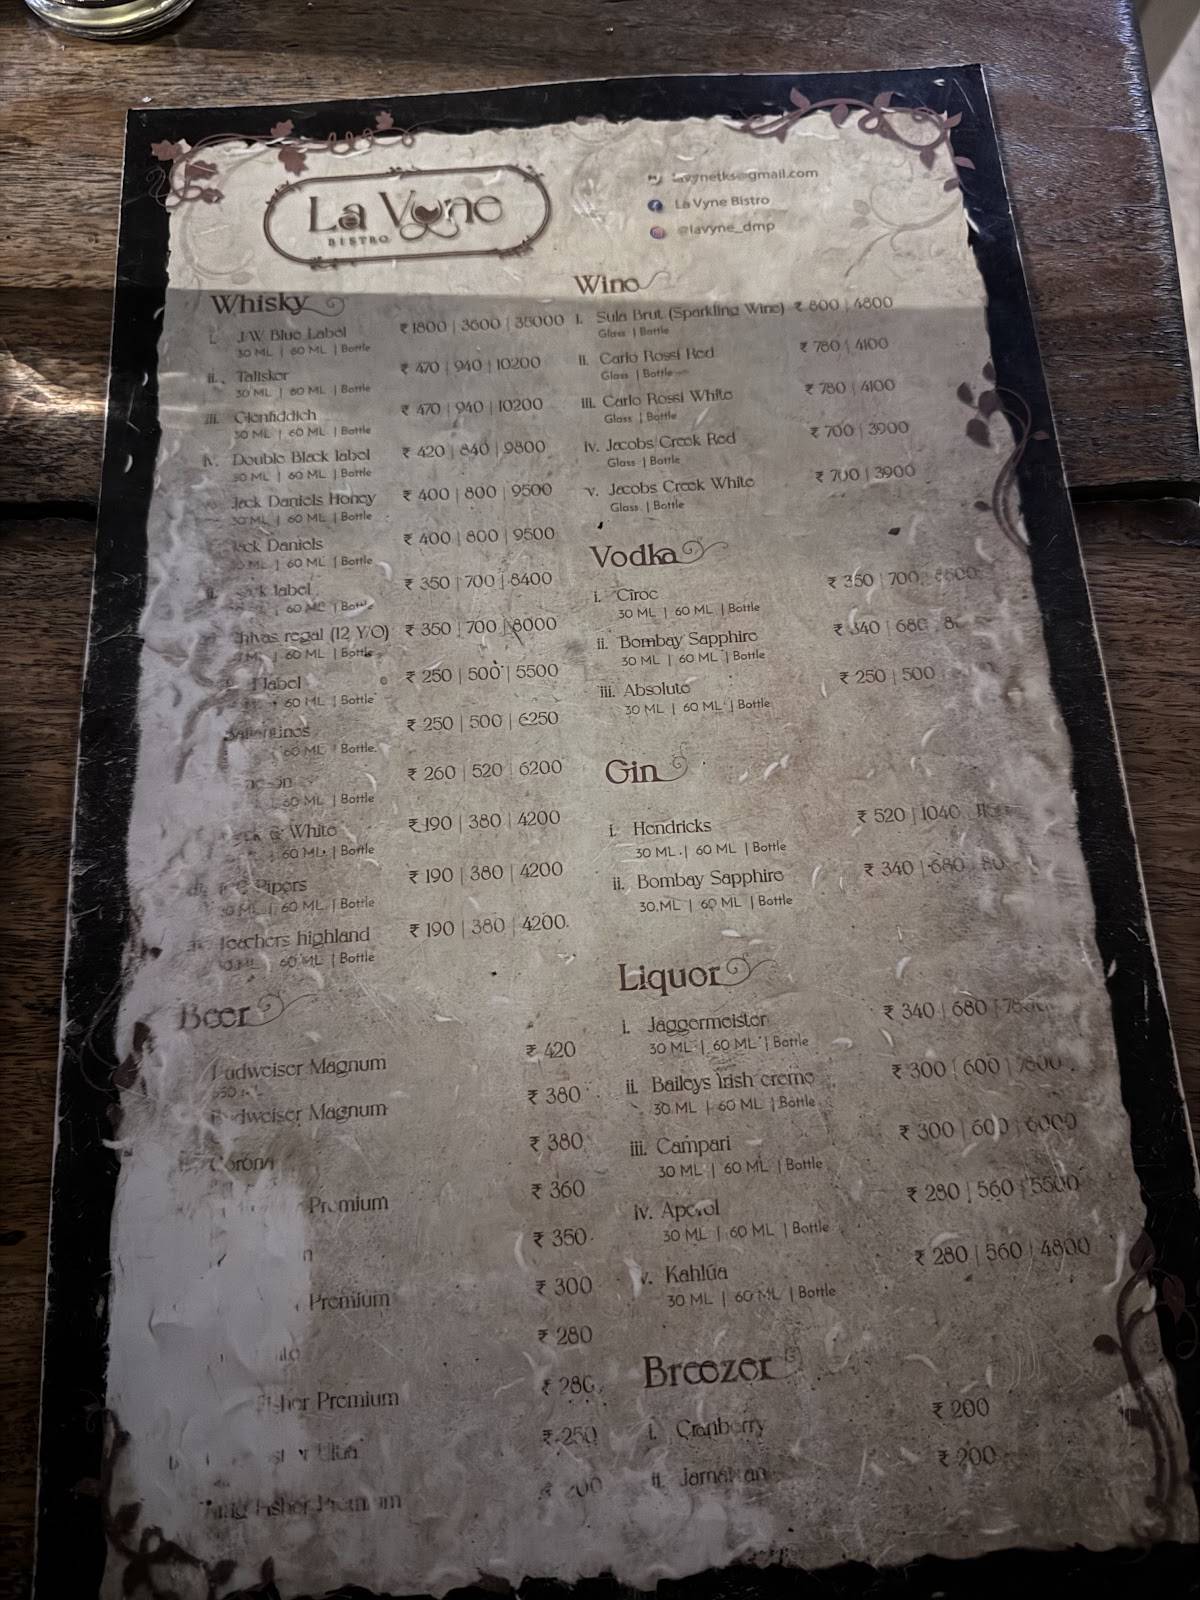 La Vyne
BISTRO
@gmail.com
La Vyne Bistro
@lavyne_dmp
Whisky
J/W Blue Label ₹ 1800 | 3600 | 36000
30 ML | 60 ML | Bottle
ii. Talisker ₹ 470 | 940 | 10200
30 ML | 60 ML | Bottle
iii. Glenfiddich ₹ 470 | 940 | 10200
30 ML | 60 ML | Bottle
iv. Double Black label ₹ 420 | 840 | 9800
30 ML | 60 ML | Bottle
Jack Daniels Honey ₹ 400 | 800 | 9500
30 ML | 60 ML | Bottle
Jack Daniels ₹ 400 | 800 | 9500
ML | 60 ML | Bottle
label ₹ 350 | 700 | 8400
60 ML | Bottle
Chivas regal (12 Y/O) ₹ 350 | 700 | 8000
ML | 60 ML | Bottle
label ₹ 250 | 500 | 5500
60 ML | Bottle
₹ 250 | 500 | 6250
60 ML | Bottle
₹ 260 | 520 | 6200
60 ML | Bottle
& White ₹ 190 | 380 | 4200
60 ML | Bottle
Pipers ₹ 190 | 380 | 4200
30 ML | 60 ML | Bottle
Teachers highland ₹ 190 | 380 | 4200
60 ML | Bottle
Beer
Budweiser Magnum ₹ 420
Budweiser Magnum ₹ 380
Corona ₹ 380
Premium ₹ 360
₹ 350
Premium ₹ 300
₹ 280
Premium ₹ 280
₹ 250
King Fisher Premium
Wine
i. Sula Brut (Sparkling Wine) ₹ 800 | 4800
Glass | Bottle
ii. Carlo Rossi Red ₹ 780 | 4100
Glass | Bottle
iii. Carlo Rossi White ₹ 780 | 4100
Glass | Bottle
iv. Jacobs Creek Red ₹ 700 | 3900
Glass | Bottle
v. Jacobs Creek White ₹ 700 | 3900
Glass | Bottle
Vodka
i. Ciroc ₹ 350 | 700
30 ML | 60 ML | Bottle
ii. Bombay Sapphire ₹ 340 | 680
30 ML | 60 ML | Bottle
iii. Absolute ₹ 250 | 500
30 ML | 60 ML | Bottle
Gin
i. Hendricks ₹ 520 | 1040
30 ML | 60 ML | Bottle
ii. Bombay Sapphire ₹ 340 | 680
30 ML | 60 ML | Bottle
Liquor
i. Jaggermeister ₹ 340 | 680
30 ML | 60 ML | Bottle
ii. Baileys Irish creme ₹ 300 | 600 | 7800
30 ML | 60 ML | Bottle
iii. Campari ₹ 300 | 600 | 6000
30 ML | 60 ML | Bottle
iv. Aperol ₹ 280 | 560 | 5500
30 ML | 60 ML | Bottle
v. Kahlúa ₹ 280 | 560 | 4800
30 ML | 60 ML | Bottle
Breezer
i. Cranberry ₹ 200
ii. Jamaican ₹ 200